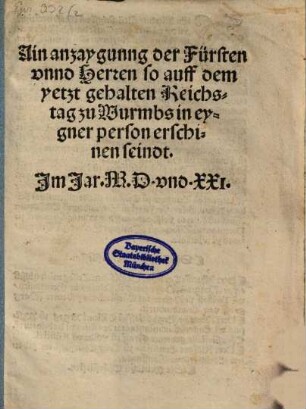 Ain anzaygunng der Fürsten
vnnd Herren so auff dem
yetzt gehalten Reichs⸗
tag zu Wurmbs in ey⸗
gner person erschi⸗
nen seindt.
Im Jar. M. D. vnd. XXI.
Bayerische
Staatsbibliothek
München